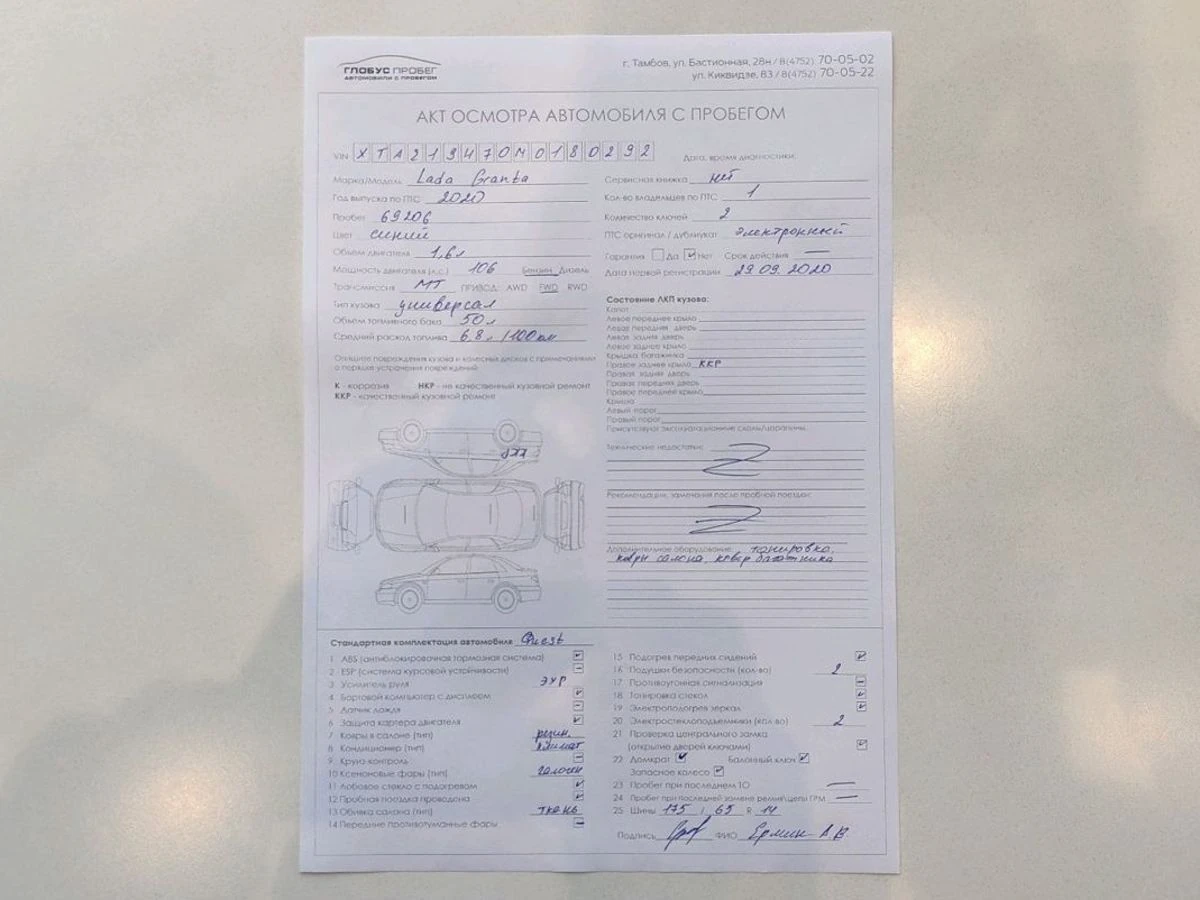 ГЛОБУС ПРОБЕГ
АВТОМОБИЛИ С ПРОБЕГОМ
г. Тамбов, ул. Бастионная, 28н / 8(4752) 70-05-02
ул. Киквидзе, 83 / 8(4752) 70-05-22
АКТ ОСМОТРА АВТОМОБИЛЯ С ПРОБЕГОМ
VIN XTA219470M0180292
Дата, время диагностики:
Марка/Модель Lada Granta
Год выпуска по ПТС 2020
Пробег 69206
Цвет синий
Объем двигателя 1,6л
Мощность двигателя (л.с.) 106 Бензин Дизель
Трансмиссия МТ ПРИВОД: AWD FWD RWD
Тип кузова универсал
Объем топливного бака 50л
Средний расход топлива 6,8 л/100км
Опишите повреждения кузова и колесных дисков с примечаниями
о порядке устранения повреждений
К - коррозия НКР - не качественный кузовной ремонт
ККР - качественный кузовной ремонт
Сервисная книжка нет
Кол-во владельцев по ПТС 1
Количество ключей 2
ПТС оригинал / дубликат электронный
Гарантия Да Нет Срок действия —
Дата первой регистрации 29.09.2020
Состояние ЛКП кузова:
Капот
Левое переднее крыло
Левая передняя дверь
Левая задняя дверь
Левое заднее крыло
Крышка багажника
Правое заднее крыло ККР
Правая задняя дверь
Правая передняя дверь
Правое переднее крыло
Крыша
Левый порог
Правый порог
Присутствуют эксплуатационные сколы/царапины.
Технические недостатки:
Рекомендации, замечания после пробной поездки:
Дополнительное оборудование: тонировка,
ковры салона, ковер багажника
ККР
Стандартная комплектация автомобиля Quest
1 ABS (антиблокировочная тормозная система)
2 ESP (система курсовой устойчивости)
3 Усилитель руля ЭУР
4 Бортовой компьютер с дисплеем
5 Датчик дождя
6 Защита картера двигателя
7 Ковры в салоне (тип) резин.
8 Кондиционер (тип) климат
9 Круиз-контроль
10 Ксеноновые фары (тип) галоген
11 Лобовое стекло с подогревом
12 Пробная поездка проведена
13 Обивка салона (тип) ткань
14 Передние противотуманные фары
15 Подогрев передних сидений
16 Подушки безопасности (кол-во) 2
17 Противоугонная сигнализация
18 Тонировка стекол
19 Электроподогрев зеркал
20 Электростеклоподъемники (кол-во) 2
21 Проверка центрального замка
(открытие дверей ключами)
22 Домкрат Балонный ключ
Запасное колесо
23 Пробег при последнем ТО —
24 Пробег при последней замене ремня\цепи ГРМ —
25 Шины 175 / 65 R 14
Подпись ФИО Ермин А В